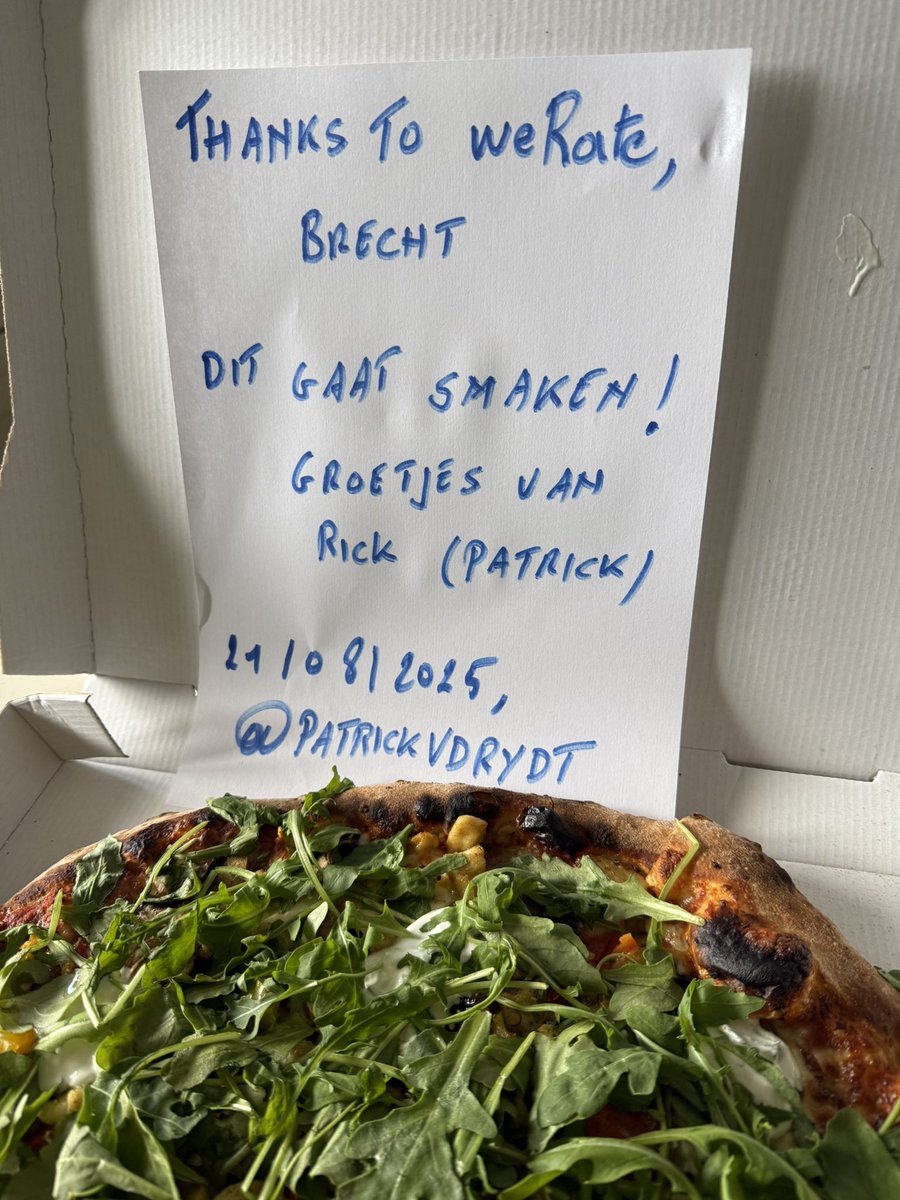 THANKS TO weRate,
BRECHT
DIT GAAT SMAKEN!
GROETJES VAN
RICK (PATRICK)
21/08/2025,
@PATRICKVDRYDT